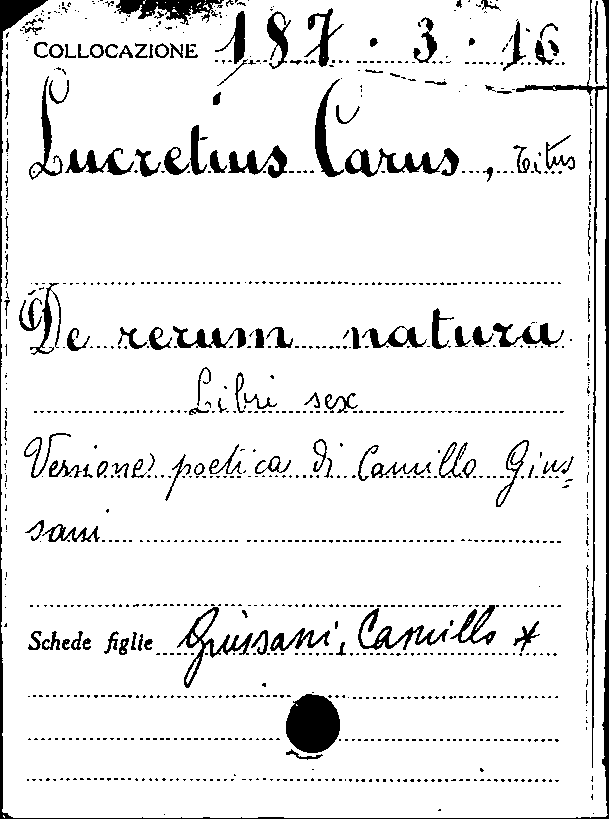 COLLOCAZIONE 187 · 3 · 16
Lucretius Carus, Titus
De rerum natura
Libri sex
Versione poetica di Camillo Gius=
sani
Schede figlie Giussani, Camillo *